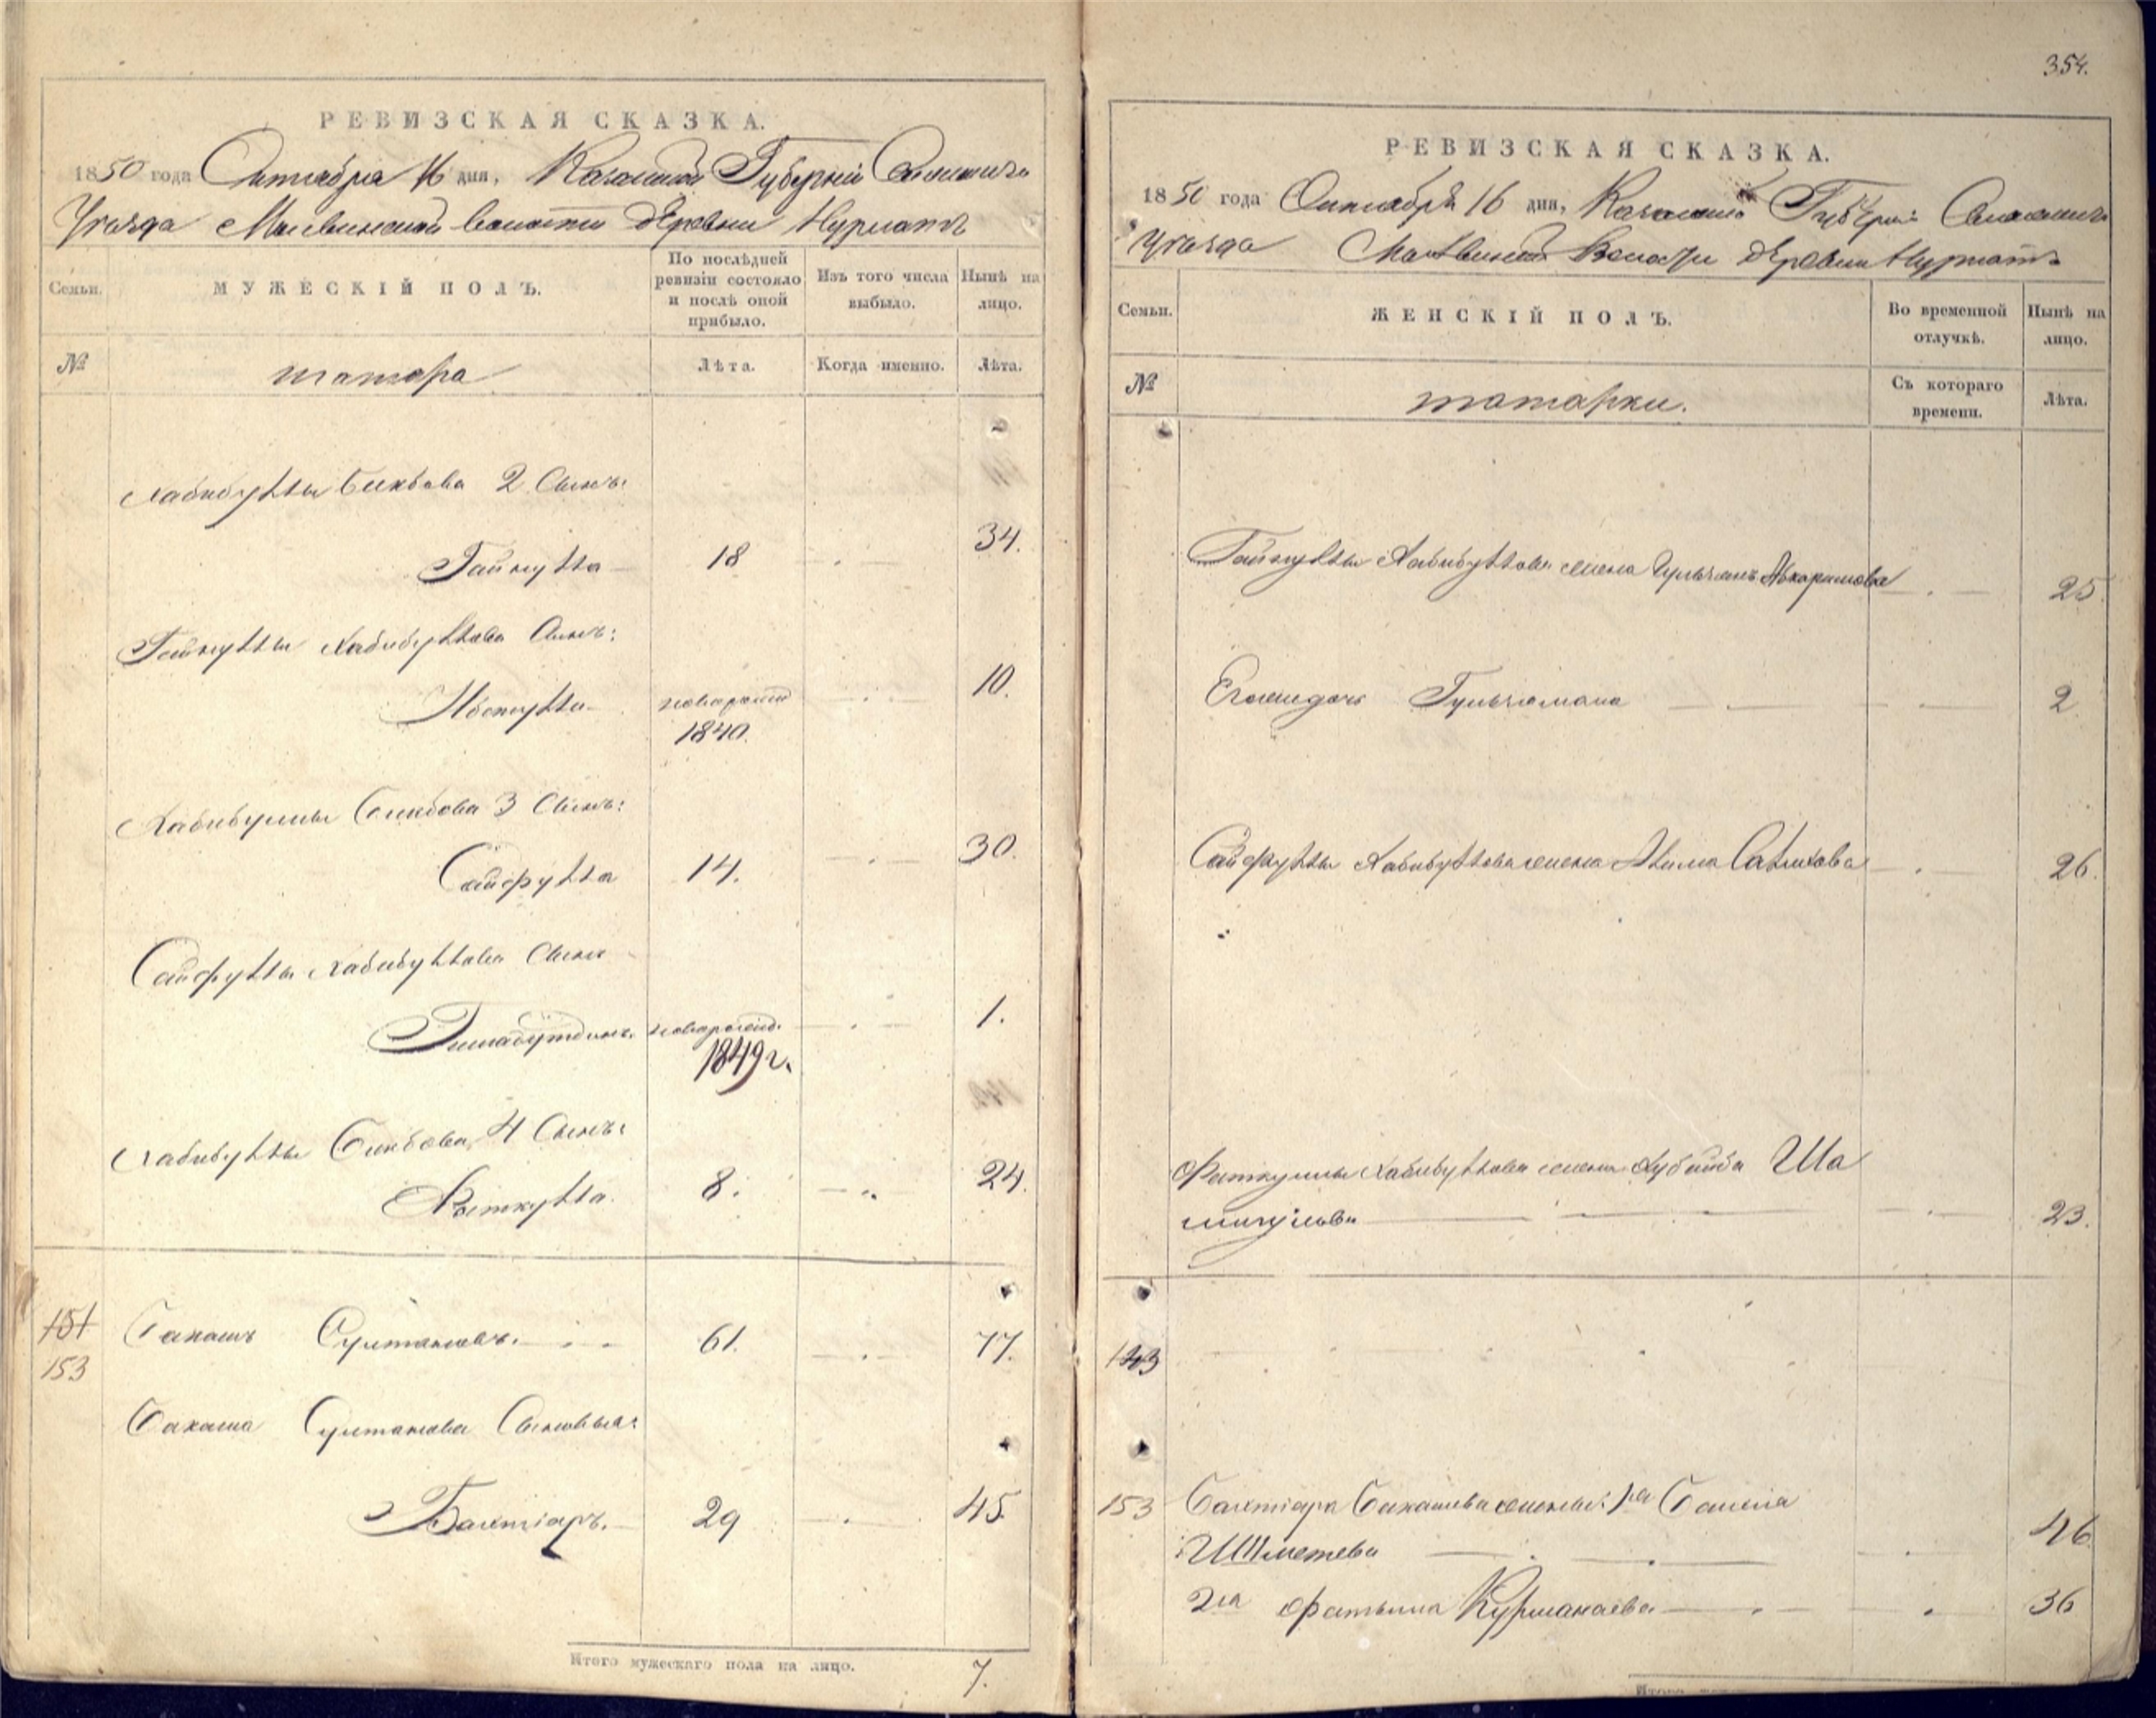 РЕВИЗСКАЯ СКАЗКА.
1850 года Октября 16 дня, Казанской Губернiи Спасскаго
Уѣзда волости деревни Нурлатъ
Семьи.
МУЖЕСКIЙ ПОЛЪ.
По послѣдней ревизiи состояло и послѣ оной прибыло.
Изъ того числа выбыло.
Нынѣ на лицо.
№
татара
Лѣта.
Когда именно.
Лѣта.
Хабибуллы Бикбова 2 Сынъ:
Гайнулла 18 34.
Гайнуллы Хабибуллова Сынъ:
новорожд 10.
1840.
Хабибуллы Бикбова 3 Сынъ:
Сайфулла 14. 30.
Сайфуллы Хабибуллова Сынъ
новорожд. 1.
1849 г.
Хабибуллы Бикбова 4 Сынъ:
Фаткулла 8. 24.
151 Бакашъ Султановъ. 61. 77.
153
Бакаша Султанова Сыновья:
Бахтiаръ. 29 45.
Итого мужескаго пола на лицо. 7.
354.
РЕВИЗСКАЯ СКАЗКА.
1850 года Октября 16 дня, Казанской Губернiи
Уѣзда Волости деревни Нурлатъ
Семьи.
ЖЕНСКIЙ ПОЛЪ.
Во временной отлучкѣ.
Нынѣ на лицо.
№
татарки.
Съ котораго времени.
Лѣта.
Гайнуллы Хабибуллова жена Абкаримова 25.
Его дочь 2
Сайфуллы Хабибуллова жена 26.
Фаткуллы Хабибуллова жена Хубайба Ша
23.
143
153 Бахтiара Бакашева жены: 1ая
46.
2ая Фатыма Курманаева 36